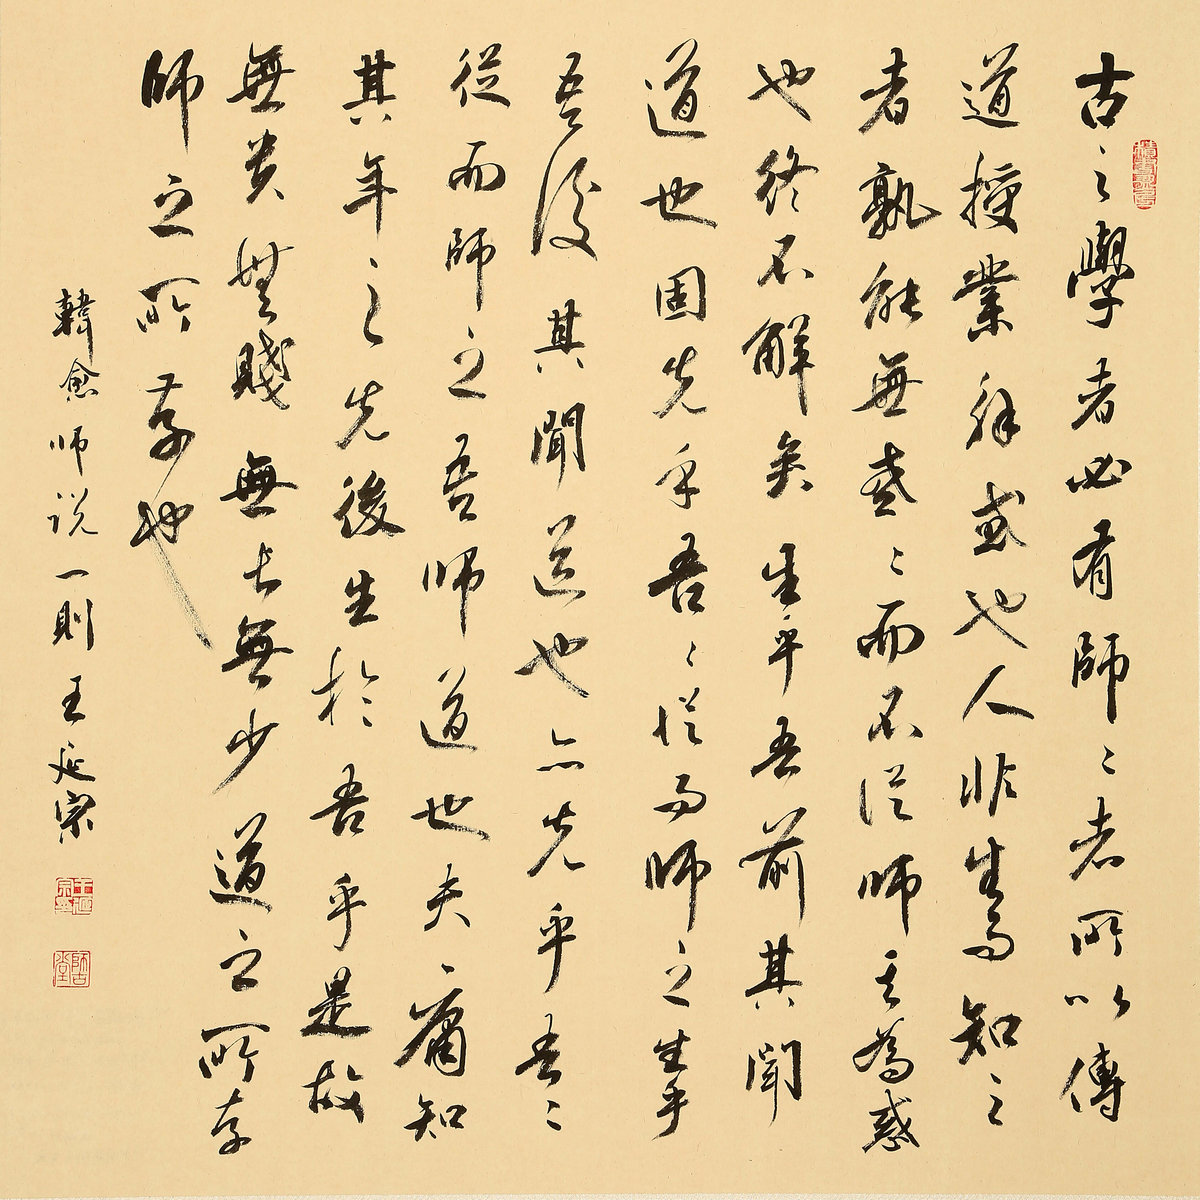 古之學者必有師〻者所以傳
道授業解惑也人非生而知之
者孰能無惑〻而不從師其為惑
也終不解矣生乎吾前其聞
道也固先乎吾〻從而師之生乎
吾後其聞道也亦先乎吾〻
從而師之吾師道也夫庸知
其年之先後生於吾乎是故
無貴無賤無長無少道之所存
師之所存也
韓愈师说一則王延宗
師古堂